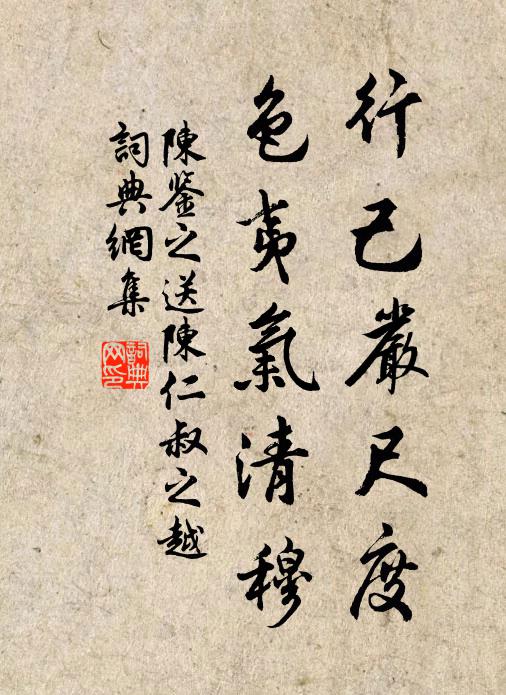 行己嚴尺度
色夷氣清穆
陳鑒之送陳仁叔之越
詞典網集
詞典网印